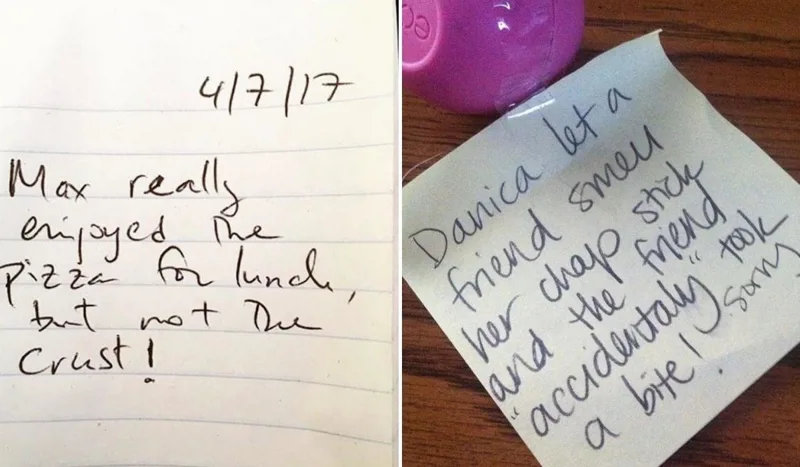 4/7/17
Max really
enjoyed the
pizza for lunch,
but not the
crust!
eos
Danica let a
friend smell
her chap stick
and the friend
"accidentaly" took
a bite! sorry